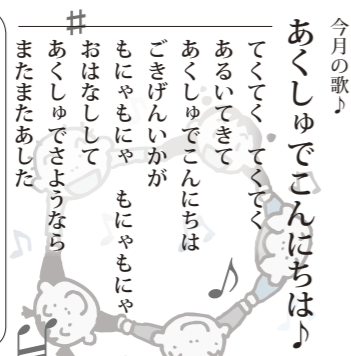 今月の歌♪
あくしゅでこんにちは♪
てくてく　てくてく
あるいてきて
あくしゅでこんにちは
ごきげんいかが
もにゃもにゃ　もにゃもにゃ
おはなしして
あくしゅでさようなら
またまたあした